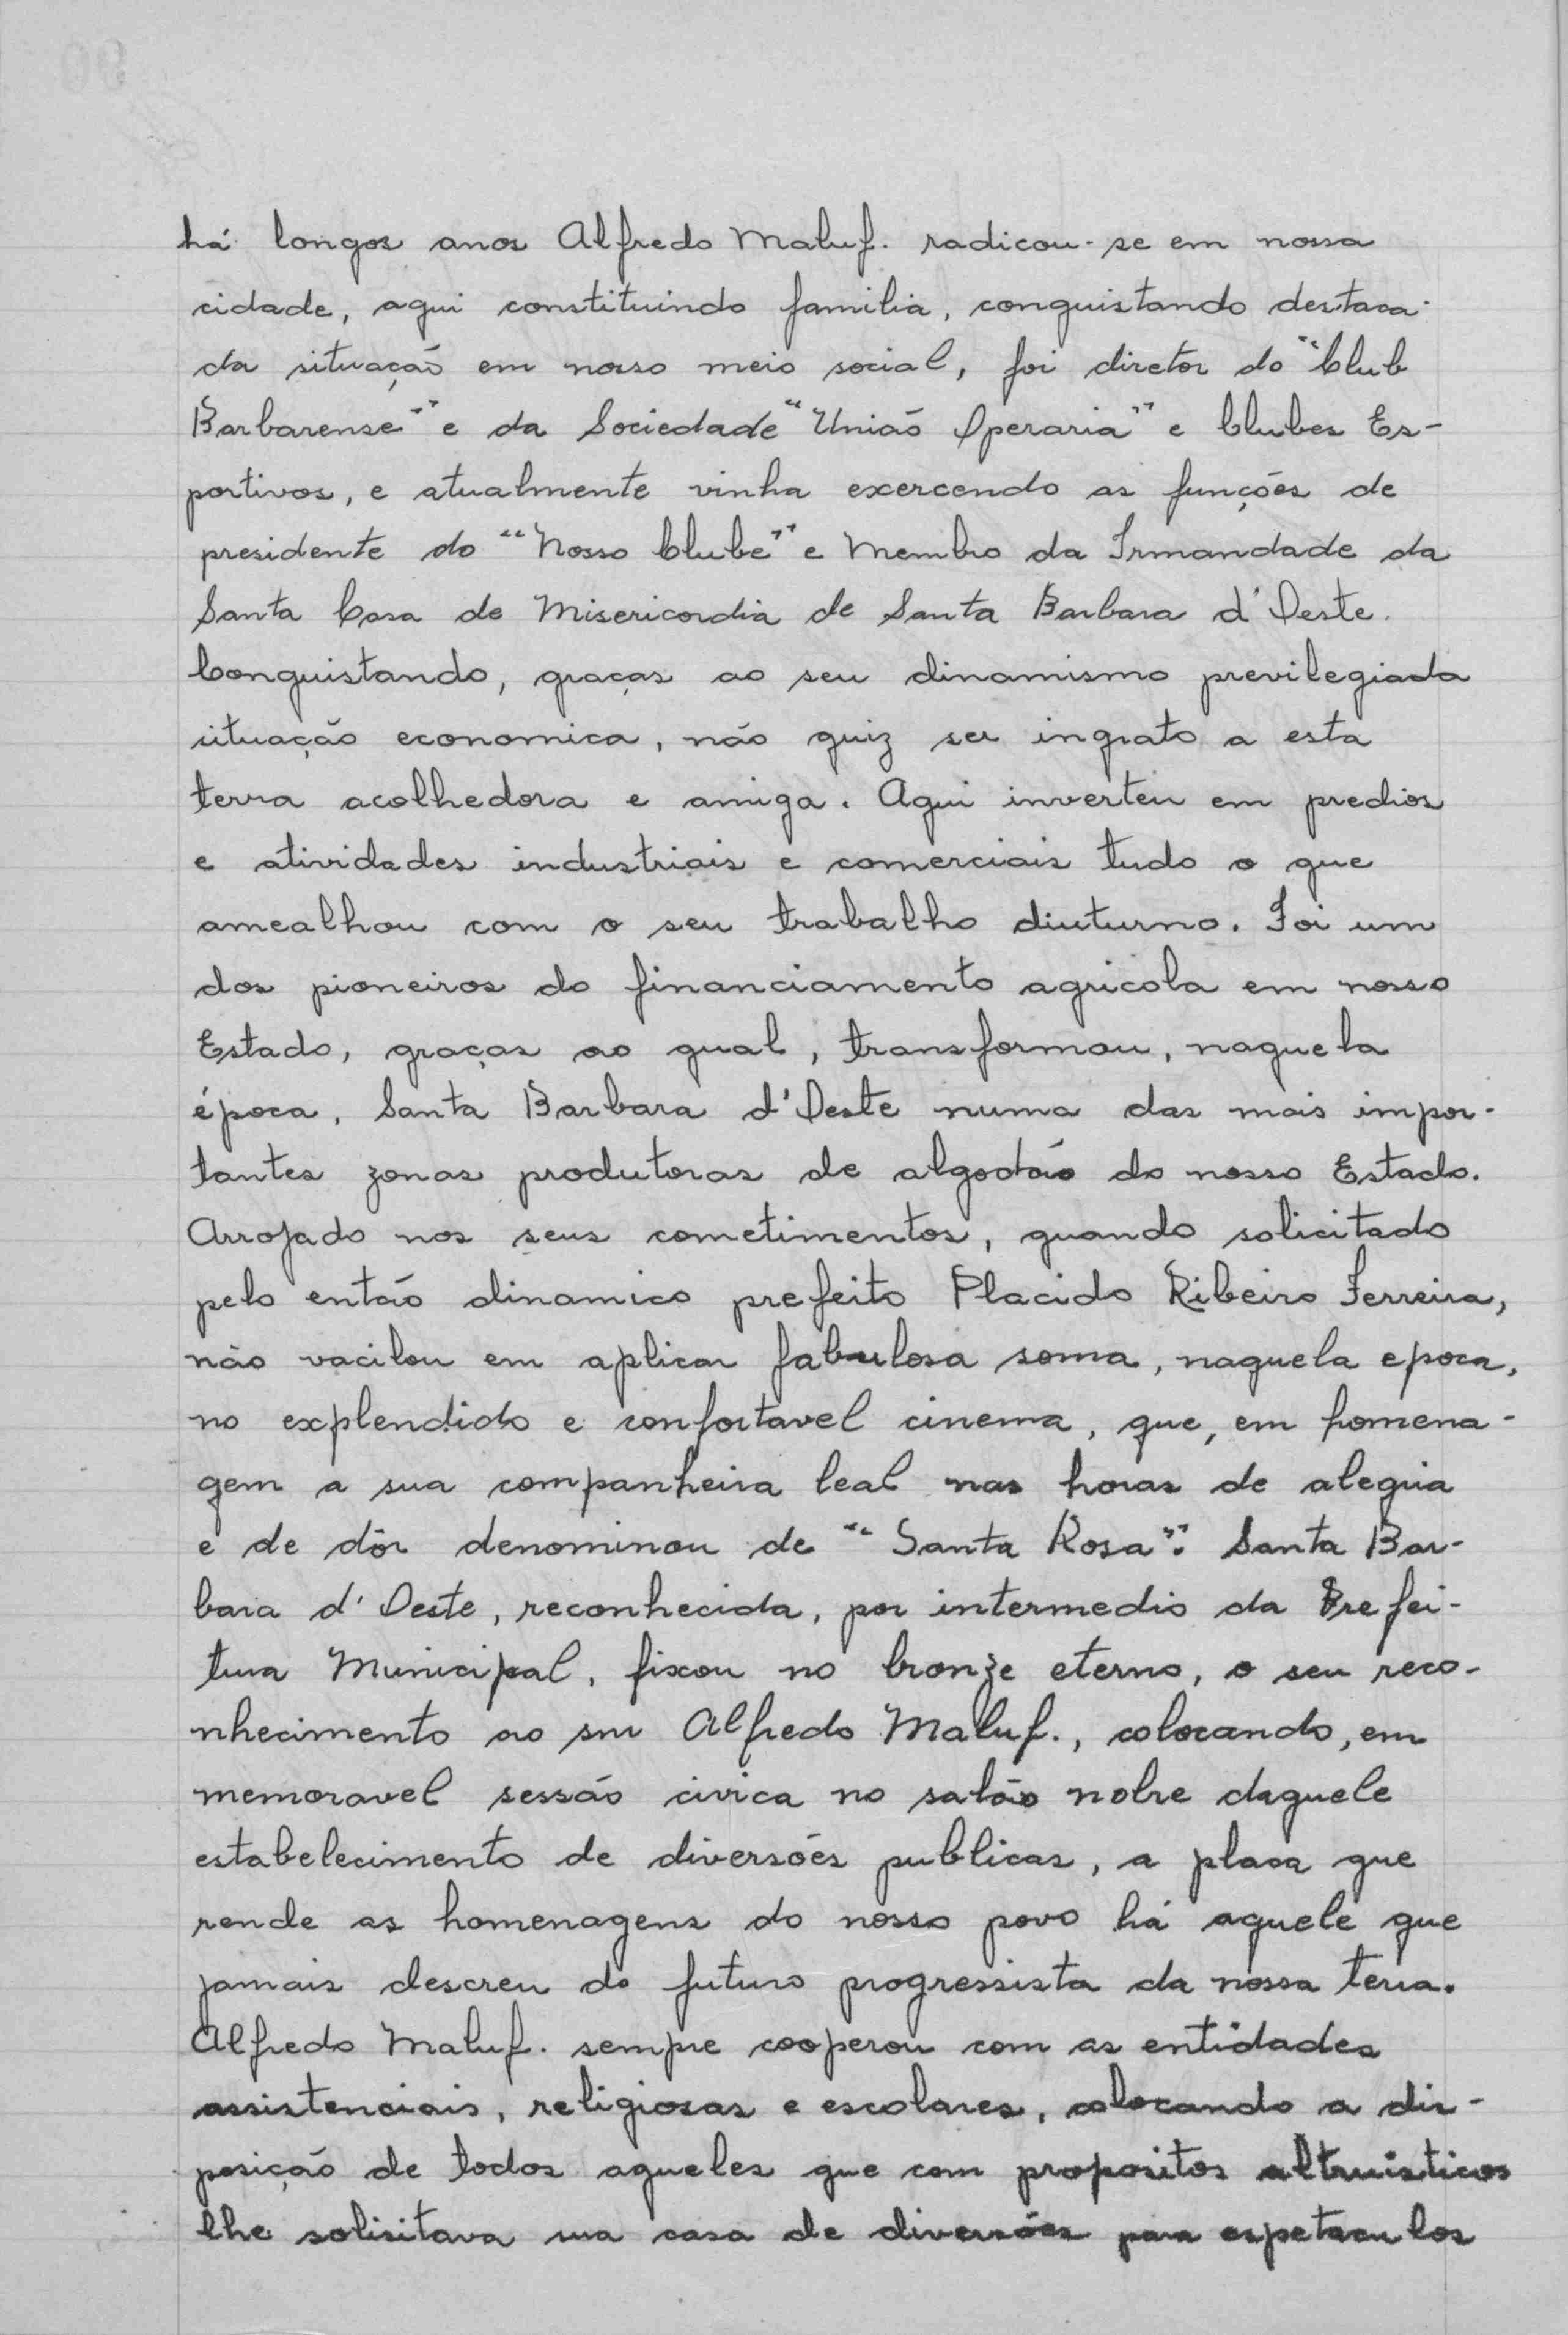 há longos anos Alfredo Maluf. radicou-se em nossa
cidade, aqui constituindo familia, conquistando destaca-
da situação em nosso meio social, foi diretor do "Club
Barbarense" e da Sociedade "União Operaria" e Clubes Es-
portivos, e atualmente vinha exercendo as funções de
presidente do "Nosso Clube" e Membro da Irmandade da
Santa Casa de Misericordia de Santa Barbara d'Oeste.
Conquistando, graças ao seu dinamismo previlegiada
situação economica, não quiz ser ingrato a esta
terra acolhedora e amiga. Aqui inverteu em predios
e atividades industriais e comerciais tudo o que
amealhou com o seu trabalho diuturno. Foi um
dos pioneiros do financiamento agricola em nosso
Estado, graças ao qual, transformou, naquela
época, Santa Barbara d'Oeste numa das mais impor-
tantes zonas produtoras de algodão do nosso Estado.
Arrojado nos seus cometimentos, quando solicitado
pelo então dinamico prefeito Placido Ribeiro Ferreira,
não vacilou em aplicar fabulosa soma, naquela epoca,
no explendido e confortavel cinema, que, em homena-
gem a sua companheira leal nas horas de alegria
e de dôr denominou de "Santa Rosa". Santa Bar-
bara d'Oeste, reconhecida, por intermedio da Prefei-
tura Municipal, fixou no bronze eterno, o seu reco-
nhecimento ao snr Alfredo Maluf., colocando, em
memoravel sessão civica no salão nobre daquele
estabelecimento de diversões publicas, a placa que
rende as homenagens do nosso povo há aquele que
jamais descreu do futuro progressista da nossa terra.
Alfredo Maluf. sempre cooperou com as entidades
assistenciais, religiosas e escolares, colocando a dis-
posição de todos aqueles que com propositos altruisticos
lhe solisitava sua casa de diversões para espetaculos